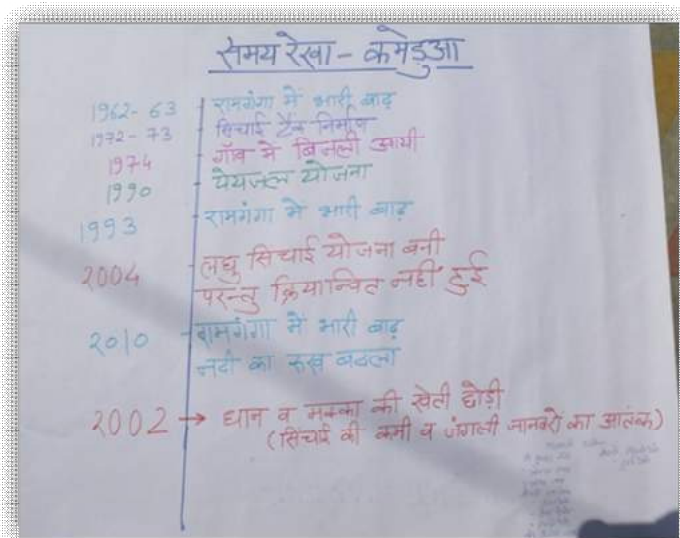 समय रेखा - कमेडुआ
1962-63 रामगंगा में भारी बाढ़
1972-73 सिंचाई टैंक निर्माण
1974 गाँव मे बिजली आयी
1990 पेयजल योजना
1993 रामगंगा मे भारी बाढ़
2004 लघु सिचाई योजना बनी
परन्तु क्रियान्वित नहीं हुई
2010 रामगंगा में भारी बाढ़
नदी का रूख बदला
2002 → धान व मक्का की खेती छोड़ी
(सिंचाई की कमी व जंगली जानवरों का आतंक)